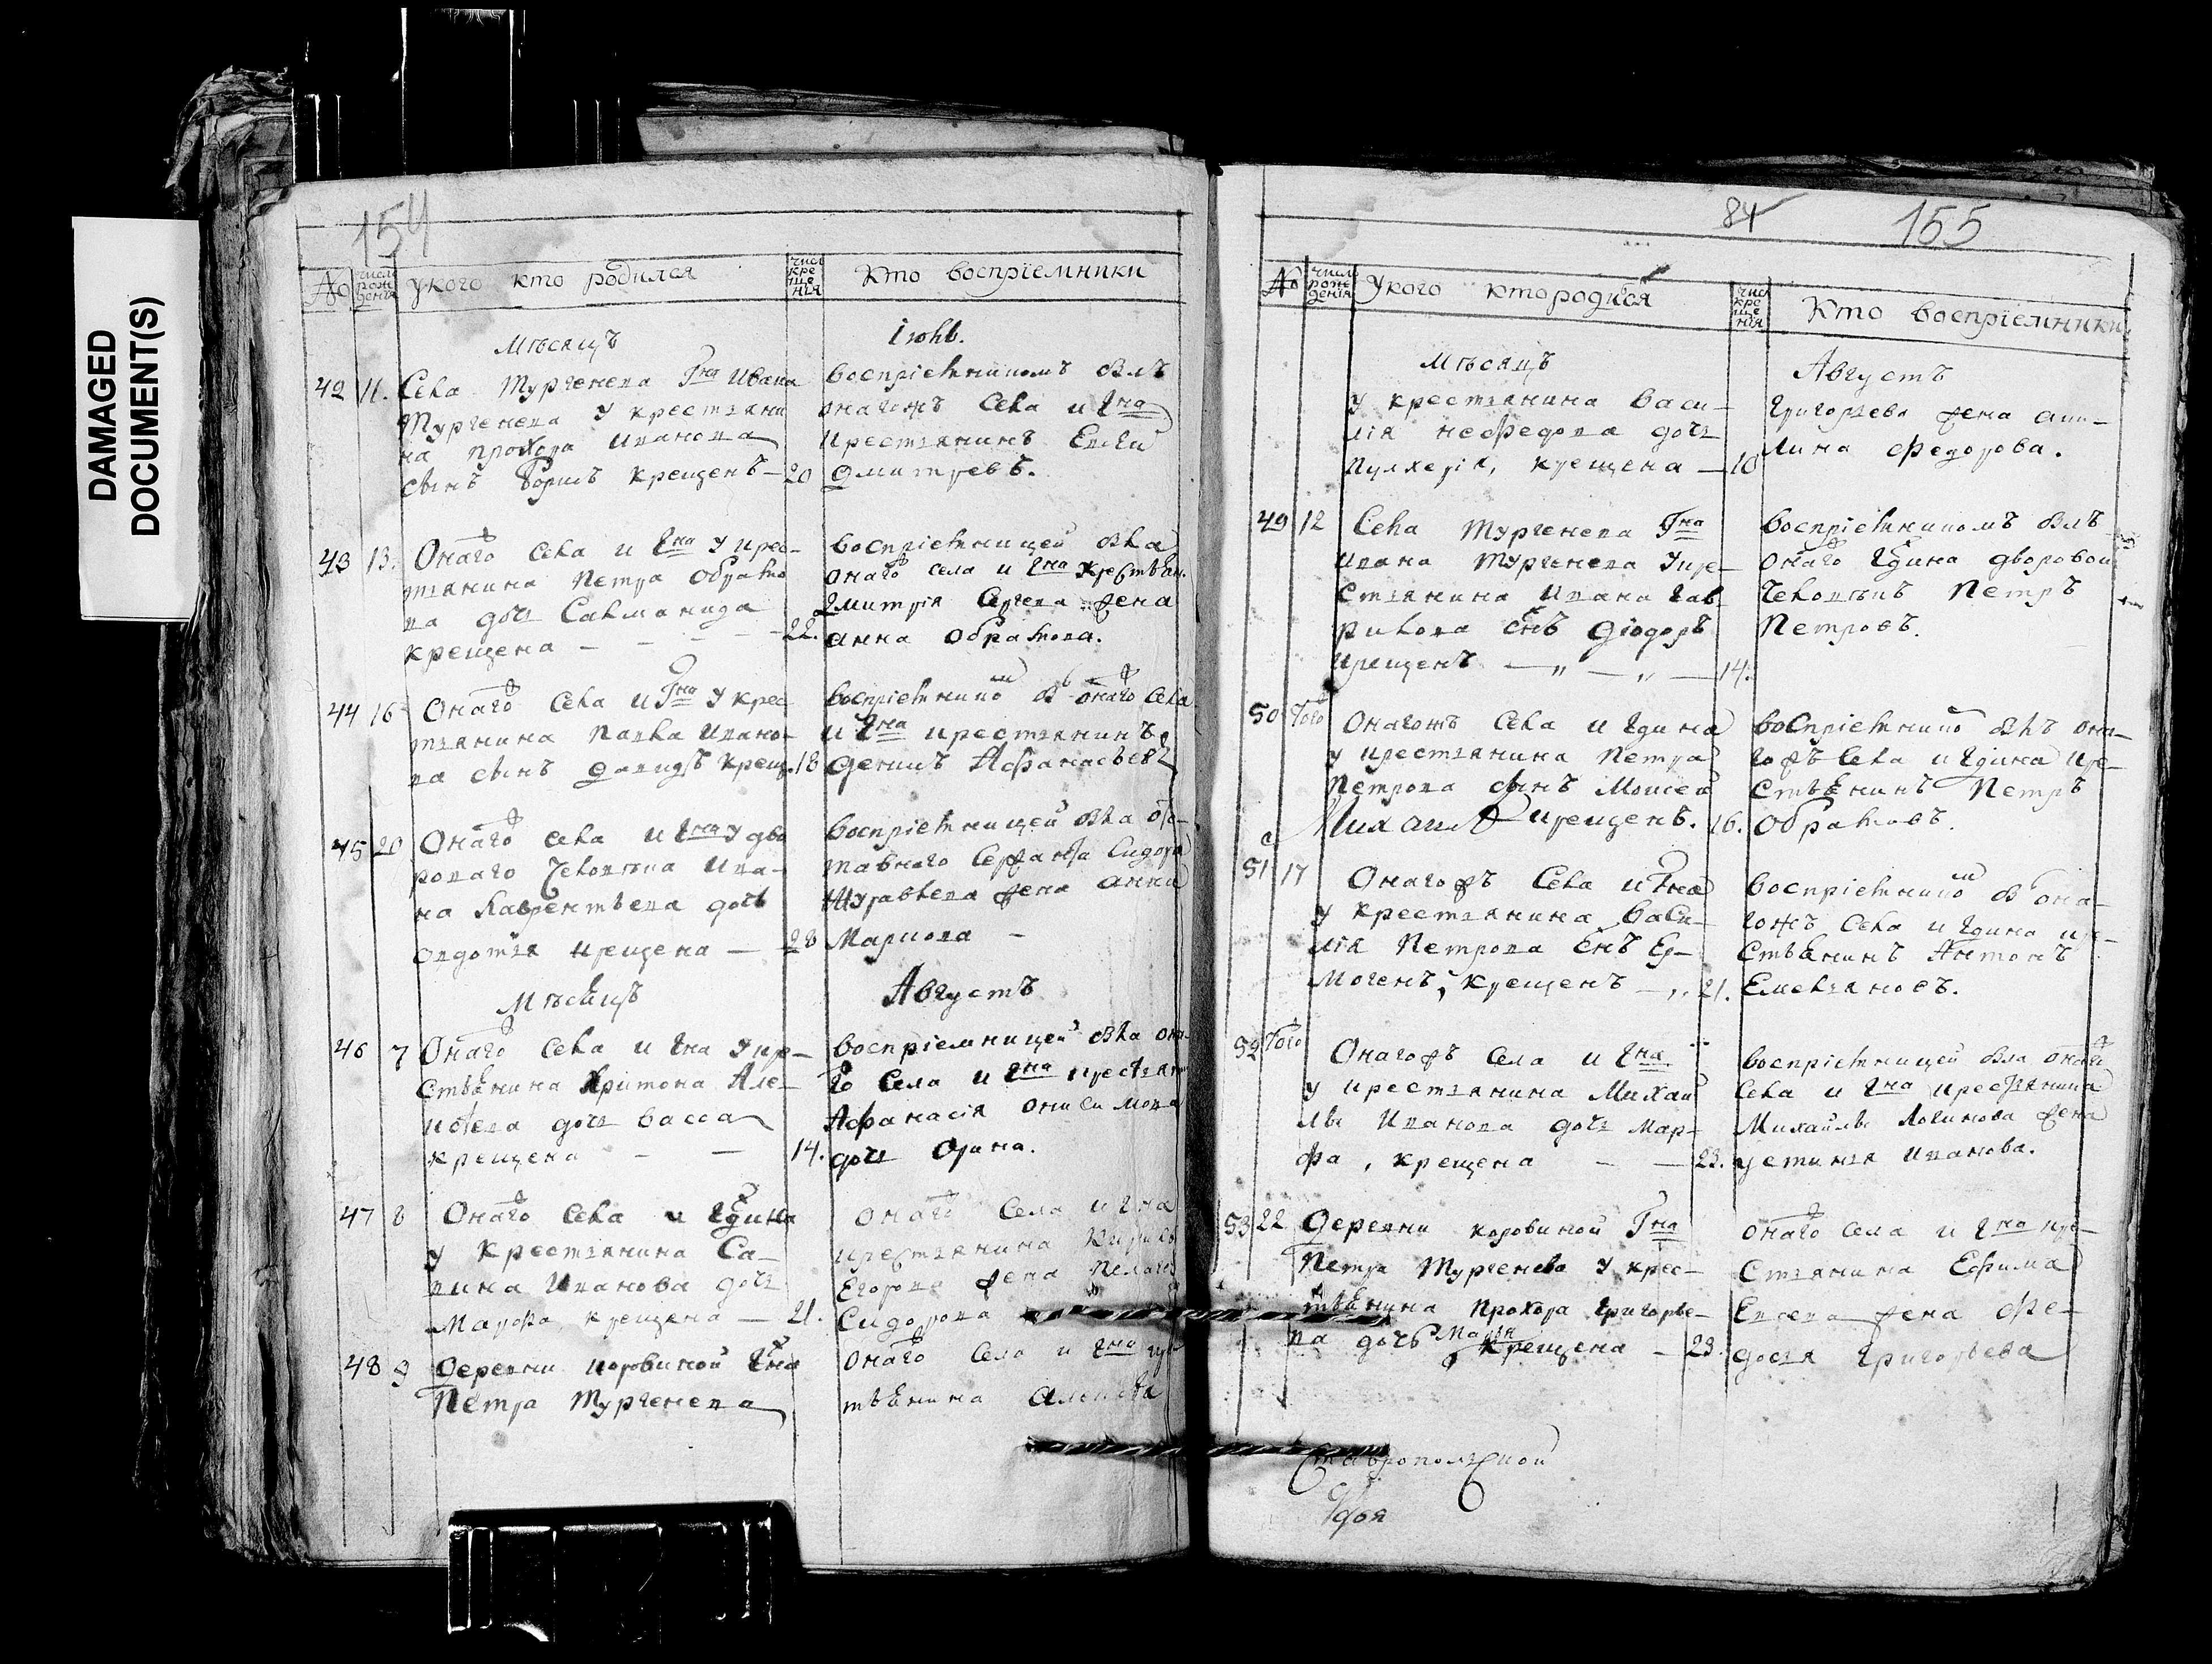 DAMAGED
DOCUMENT(S)
154
№ число рожденія У кого кто родился число крещенія Кто воспріемники
Мѣсяцъ Іюнь.
42 11. Села Тургенева Гна Ивана
Тургенева у крестьяни
на Прохора Иванова
сынъ Борисъ крещенъ — 20
воспріемникомъ былъ
онагожъ села и Гна
крестьянинъ
Дмитревъ.
43 13. Онаго села и Гна у крес-
тьянина Петра
ва дочь Саламанида
крещена — — — 22.
воспріемницей была
онаго села и Гна крестьян.
Дмитрія Сергева жена
Анна
44 16 Онаго села и Гна у крес
тьянина Павла Ивано-
ва сынъ Давидъ крещ. 18
воспріемнико б онаго села
и Гна крестьянинъ
Денисъ Афанасьевъ
45 20 Онаго села и Гна у дво
роваго человѣка Ива-
на Лаврентьева дочь
Овдотья крещена — 28
воспріемницей была от-
тавного Сержанта Сидора
Журавлева жена Анна
Маркова —
Мѣсяцъ Августъ
46 7 Онаго села и Гна у кр-
стьянина Харитона Але-
ксѣева дочь Васса
крещена — — 14.
воспріемницей была она-
го села и Гна крестьян
Афанасія Онисимова
дочь Орина.
47 8 Онаго села и Гдина
у крестьянина Са-
вина Иванова дочь
Марфа, крещена — 21.
онаго села и Гна
крестьянина Кирила
Егорова жена Пелагея
Сидорова
48 9 Деревни Коровиной Гна
Петра Тургенева
онаго села и Гна кре
тьянина Алексѣя
84 155
№ число рожденія У кого кто родился число крещенія Кто воспріемники
Мѣсяцъ Августъ
у крестьянина Васи-
лія Нефедова дочь
Пулхерія, крещена — 10
Григорьева жена Аку-
лина Федорова.
49 12 Села Тургенева Гна
Ивана Тургенева у кре-
стьянина Ивана Гав
рилова снъ Фіодоръ
крещенъ — „ — „ — 14.
воспріемникомъ былъ
онаго Гдина дворовой
человѣкъ Петръ
Петровъ.
50 Того Онагожъ села и Гдина
у крестьянина Петра
Петрова сынъ Моисей
Михаилъ крещенъ. 16.
воспріемнико былъ она-
гожъ села и Гдина кре-
стьянинъ Петръ
51 17 Онагожъ села и Гна
у крестьянина Васи-
лія Петрова снъ Ер-
могенъ, крещенъ — „ 21.
воспріемнико б она-
гожъ села и Гдина кр-
стьянинъ Антонъ
Емельяновъ.
52 Того Онагожъ села и Гна
у крестьянина Михаи
лы Иванова дочь Мар-
фа, крещена — — 23.
воспріемницей была онаго
села и Гна крестьянина
Михайлы Логинова жена
Устинья Иванова.
53 22 Деревни Коровиной Гна
Петра Тургенева у крес-
тьянина Прохора Григорье-
ва дочь Марья крещена — 23.
онаго села и Гна кре-
стьянина Ефима
Евсева жена Фе-
досья Григорьева
Ставропольской